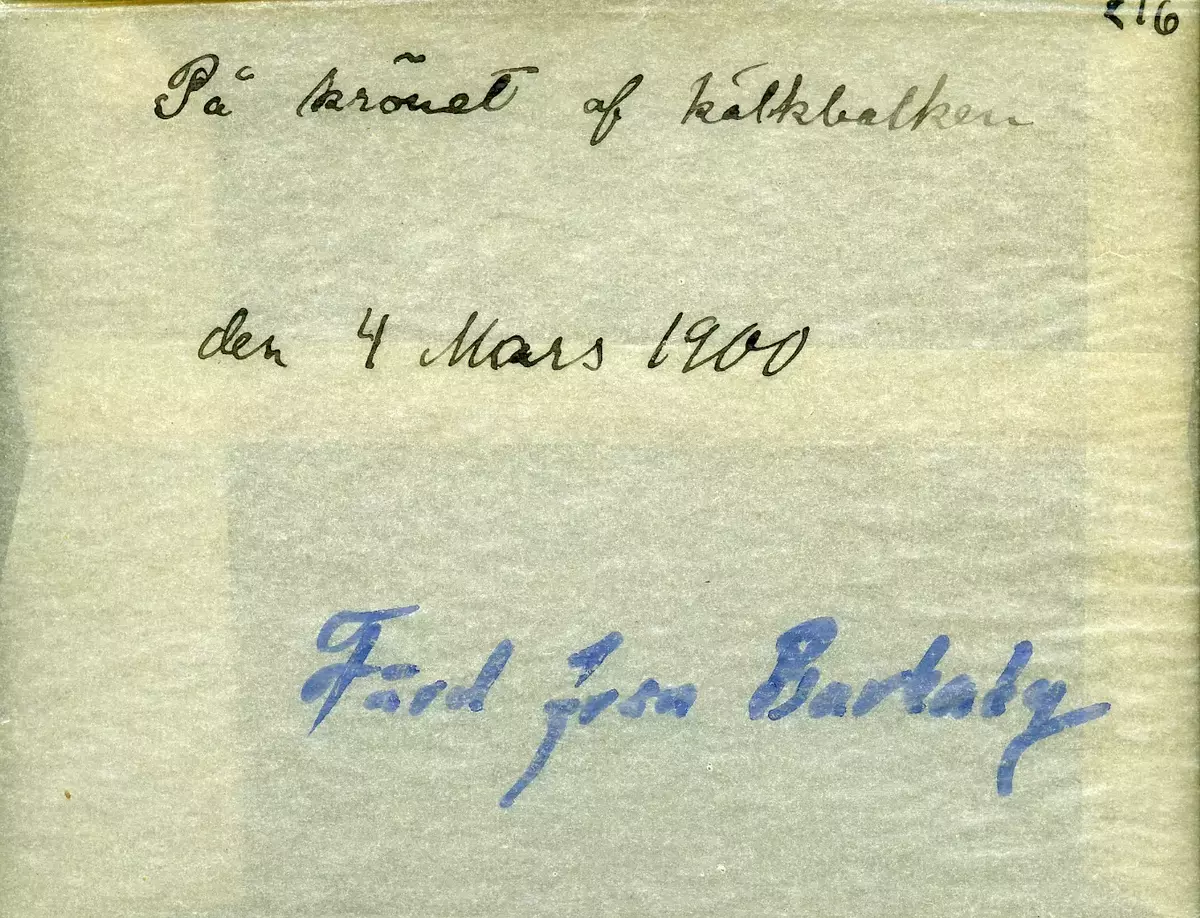 216
På krönet af kälkbalken
den 4 Mars 1900
Färd från Barkaby